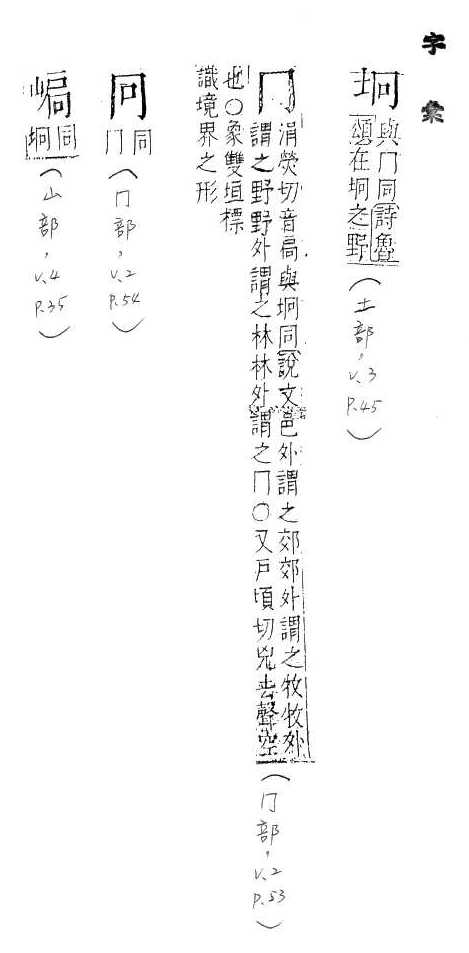 字彙
坰
與冂同詩魯
頌在坰之野
(土部, v.3 P.45)
冂
涓熒切音扃與坰同說文邑外謂之郊郊外謂之牧牧外
謂之野野外謂之林林外謂之冂○又戶頃切兄去聲空
也○象雙垣標
識境界之形
(冂部, v.2 P.53)
冋
同
冂
(冂部, v.2 P.54)
同
坰
(山部, v.4 P.35)